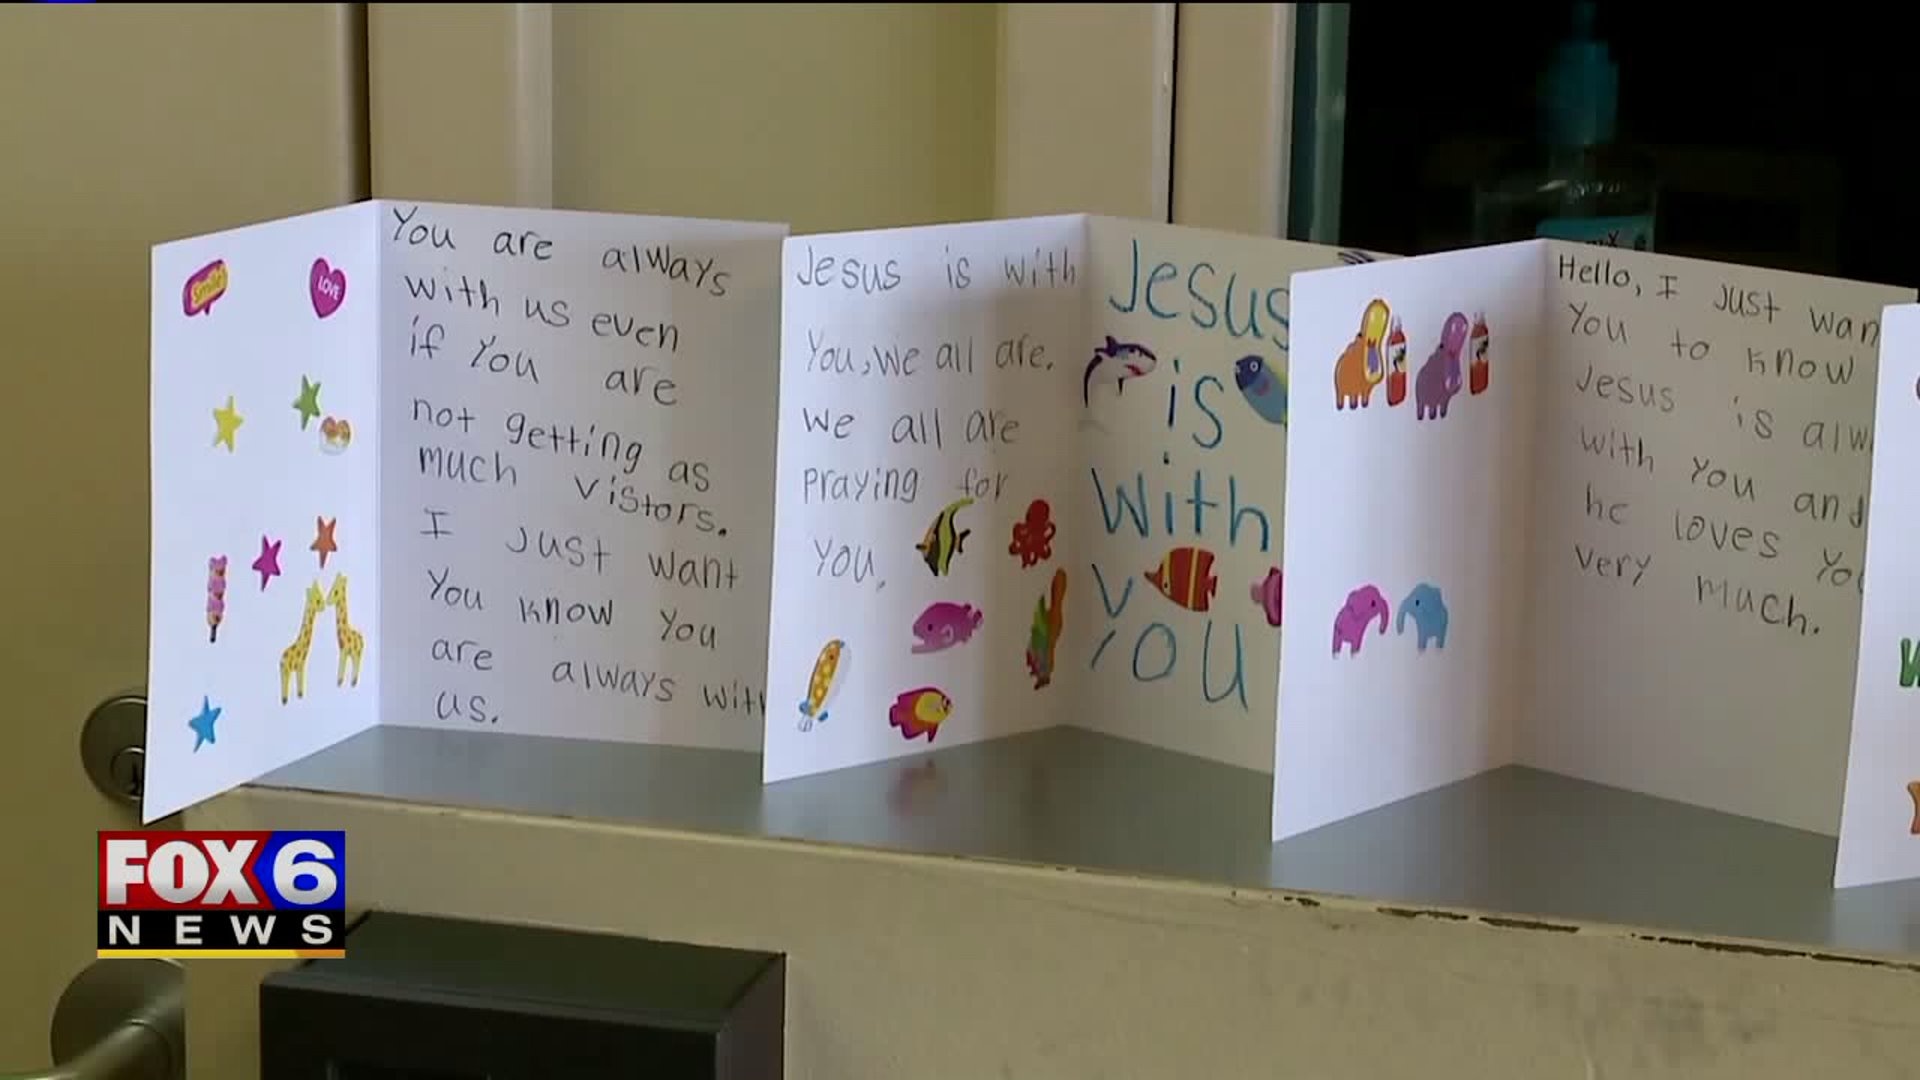 Smile!
LOVE
You are always
with us even
if you are
not getting as
much vistors.
I just want
you know you
are always with
us.
Jesus is with
you, we all are.
we all are
praying for
you.
Jesus
is
with
you
Hello, I just wan
you to know
Jesus is alw
with you and
he loves yo
very much.
FOX 6
NEWS